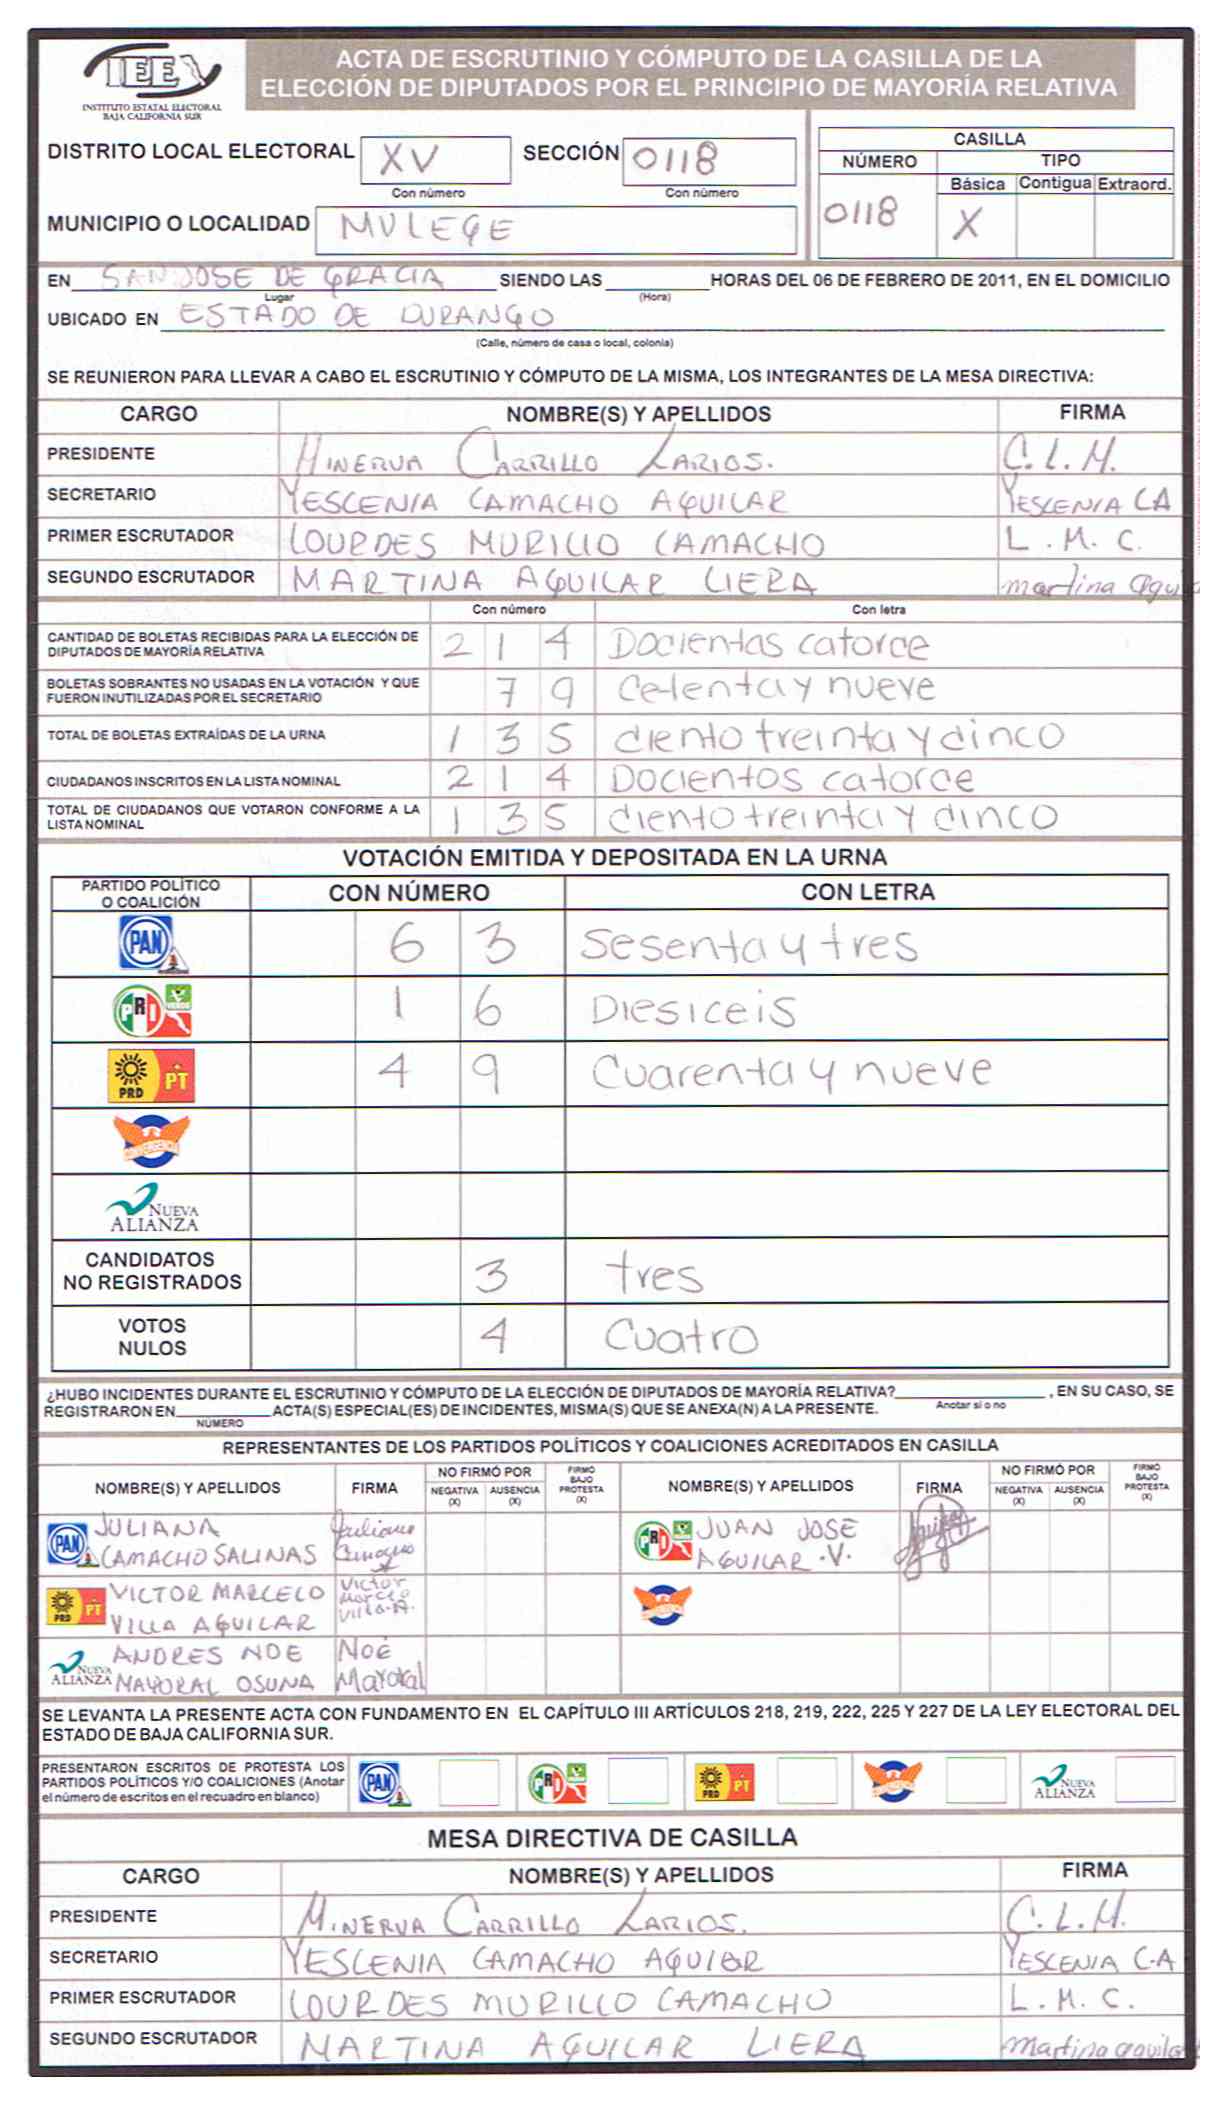 IEE
INSTITUTO ESTATAL ELECTORAL
BAJA CALIFORNIA SUR
ACTA DE ESCRUTINIO Y CÓMPUTO DE LA CASILLA DE LA
ELECCIÓN DE DIPUTADOS POR EL PRINCIPIO DE MAYORÍA RELATIVA
DISTRITO LOCAL ELECTORAL XV SECCIÓN 0118
Con número Con número
MUNICIPIO O LOCALIDAD MULEGE
CASILLA
NÚMERO TIPO
Básica Contigua Extraord.
0118 X
EN SAN JOSE DE GRACIA SIENDO LAS HORAS DEL 06 DE FEBRERO DE 2011, EN EL DOMICILIO
Lugar (Hora)
UBICADO EN ESTADO DE DURANGO
(Calle, número de casa o local, colonia)
SE REUNIERON PARA LLEVAR A CABO EL ESCRUTINIO Y CÓMPUTO DE LA MISMA, LOS INTEGRANTES DE LA MESA DIRECTIVA:
CARGO NOMBRE(S) Y APELLIDOS FIRMA
PRESIDENTE MINERVA CARRILLO LARIOS. C.L.M.
SECRETARIO YESCENIA CAMACHO AGUILAR YESCENIA CA
PRIMER ESCRUTADOR LOURDES MURILLO CAMACHO L.M.C.
SEGUNDO ESCRUTADOR MARTINA AGUILAR LIERA martina aguila
Con número Con letra
CANTIDAD DE BOLETAS RECIBIDAS PARA LA ELECCIÓN DE
DIPUTADOS DE MAYORÍA RELATIVA 2 1 4 Docientas catorce
BOLETAS SOBRANTES NO USADAS EN LA VOTACIÓN Y QUE
FUERON INUTILIZADAS POR EL SECRETARIO 7 9 Cetenta y nueve
TOTAL DE BOLETAS EXTRAÍDAS DE LA URNA 1 3 5 ciento treinta y cinco
CIUDADANOS INSCRITOS EN LA LISTA NOMINAL 2 1 4 Docientos catorce
TOTAL DE CIUDADANOS QUE VOTARON CONFORME A LA
LISTA NOMINAL 1 3 5 ciento treinta y cinco
VOTACIÓN EMITIDA Y DEPOSITADA EN LA URNA
PARTIDO POLÍTICO
O COALICIÓN CON NÚMERO CON LETRA
PAN 6 3 Sesenta y tres
PRI VERDE 1 6 Diesiceis
PRD PT 4 9 Cuarenta y nueve
CONVERGENCIA
NUEVA
ALIANZA
CANDIDATOS
NO REGISTRADOS 3 tres
VOTOS
NULOS 4 Cuatro
¿HUBO INCIDENTES DURANTE EL ESCRUTINIO Y CÓMPUTO DE LA ELECCIÓN DE DIPUTADOS DE MAYORÍA RELATIVA? , EN SU CASO, SE
Anotar si o no
REGISTRARON EN ACTA(S) ESPECIAL(ES) DE INCIDENTES, MISMA(S) QUE SE ANEXA(N) A LA PRESENTE.
NÚMERO
REPRESENTANTES DE LOS PARTIDOS POLÍTICOS Y COALICIONES ACREDITADOS EN CASILLA
NOMBRE(S) Y APELLIDOS FIRMA NO FIRMÓ POR NEGATIVA (X) AUSENCIA (X) FIRMÓ BAJO PROTESTA (X) NOMBRE(S) Y APELLIDOS FIRMA NO FIRMÓ POR NEGATIVA (X) AUSENCIA (X) FIRMÓ BAJO PROTESTA (X)
PAN JULIANA Juliana PRI JUAN JOSE
CAMACHO SALINAS AGUILAR .V.
PRD PT VICTOR MARCELO Victor
VILLA AGUILAR Marcelo Villa.A. CONVERGENCIA
NUEVA ALIANZA ANDRES NOE Noé
MAYORAL OSUNA Mayoral
SE LEVANTA LA PRESENTE ACTA CON FUNDAMENTO EN EL CAPÍTULO III ARTÍCULOS 218, 219, 222, 225 Y 227 DE LA LEY ELECTORAL DEL
ESTADO DE BAJA CALIFORNIA SUR.
PRESENTARON ESCRITOS DE PROTESTA LOS
PARTIDOS POLÍTICOS Y/O COALICIONES (Anotar
el número de escritos en el recuadro en blanco) PAN PRI PRD PT CONVERGENCIA NUEVA ALIANZA
MESA DIRECTIVA DE CASILLA
CARGO NOMBRE(S) Y APELLIDOS FIRMA
PRESIDENTE MINERVA CARRILLO LARIOS. C.L.M.
SECRETARIO YESCENIA CAMACHO AGUILAR YESCENIA C.A
PRIMER ESCRUTADOR LOURDES MURILLO CAMACHO L.M.C.
SEGUNDO ESCRUTADOR MARTINA AGUILAR LIERA martina aguila